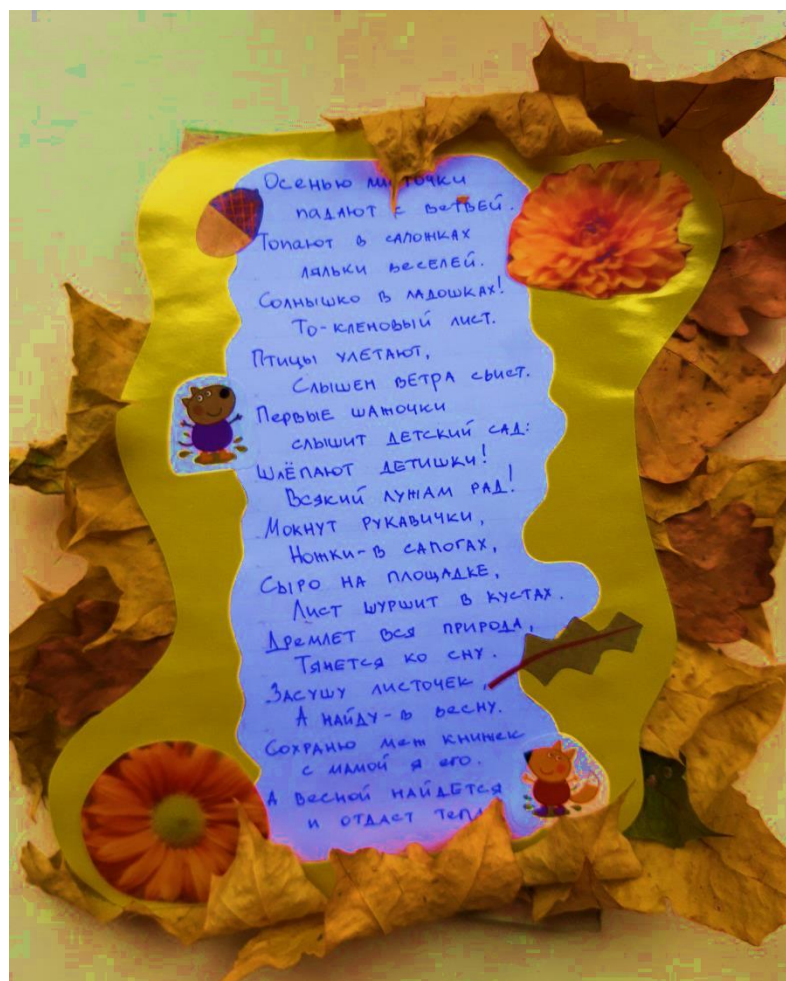 Осенью листочки
падают с ветвей.
Топают в сапожках
ляльки веселей.
Солнышко в ладошках!
То-кленовый лист.
Птицы улетают,
Слышен ветра свист.
Первые шажочки
слышит детский сад:
Шлёпают детишки!
Всякий лужам рад!
Мокнут рукавички,
Ножки-в сапогах,
Сыро на площадке,
Лист шуршит в кустах.
Дремлет вся природа,
Тянется ко сну.
Засушу листочек,
А найду-в весну.
Сохраню меж книжек
с мамой я его.
А весной найдётся
и отдаст